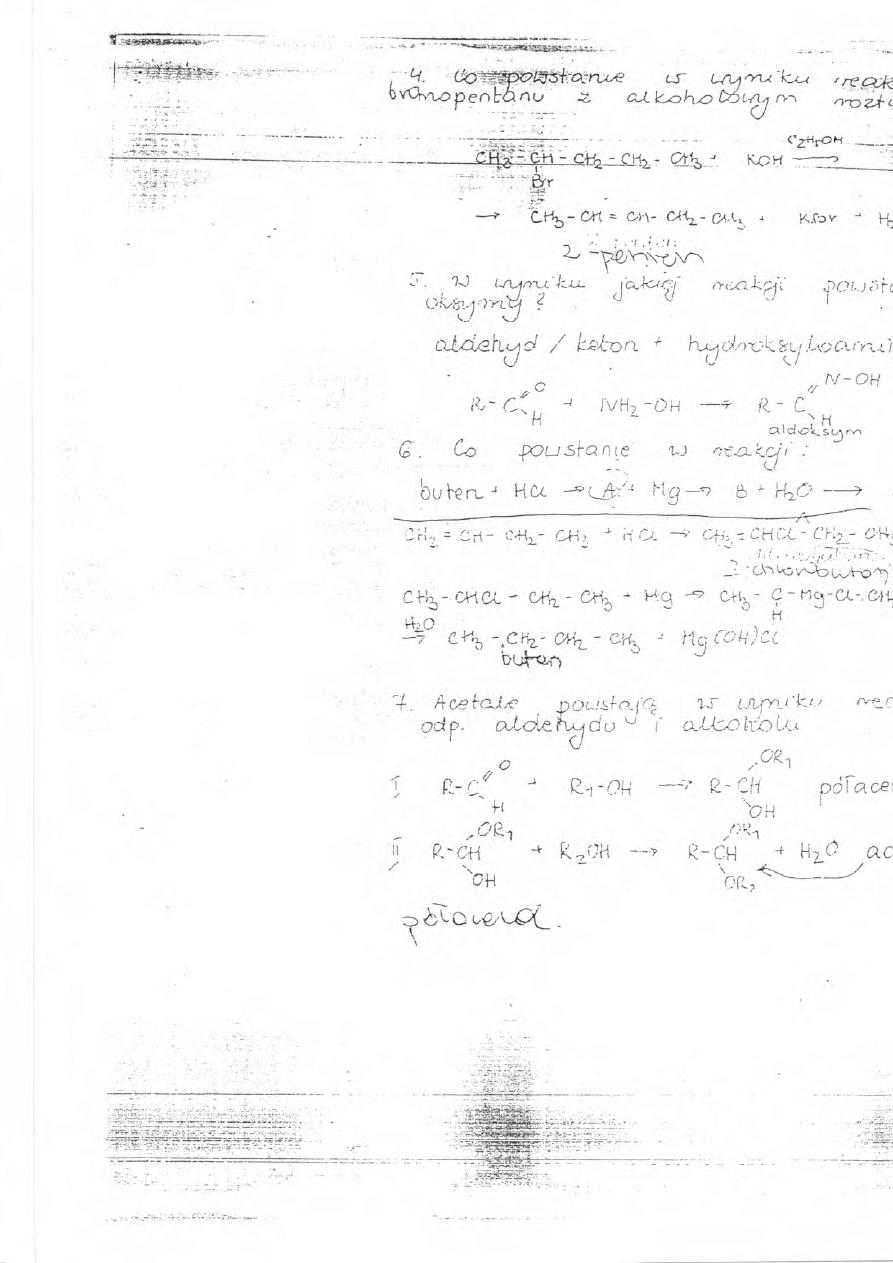 4. Co powstanie w wyniku reak
bromopentanu z alkoholowym rozt
C2H5OH
CH3 - CH - CH2 - CH2 - CH3 + KOH →
Br
→ CH3 - CH = CH - CH2 - CH3 + KBr + H2
2 - penten
5. W wyniku jakiej reakcji powsta
oksymy?
aldehyd / keton + hydroksyloami
R - C =O H + NH2-OH → R - C =N-OH H
aldoksym
6. Co powstanie w reakcji:
buten + HCl → A + Mg → B + H2O →
CH2 = CH - CH2 - CH3 + HCl → CH3 = CHCl - CH2 - CH3
2-chlorobutan
CH3 - CHCl - CH2 - CH3 + Mg → CH3 - C - Mg - Cl - CH
H
H2O
→ CH3 - CH2 - CH2 - CH3 + Mg(OH)Cl
butan
7. Acetale powstają w wyniku rea
odp. aldehydu i alkoholu
I R-C =O H + R1-OH → R-CH OR1 OH półace
II R-CH OR1 OH + R2OH → R-CH OR1 OR2 + H2O ac
półacetal.